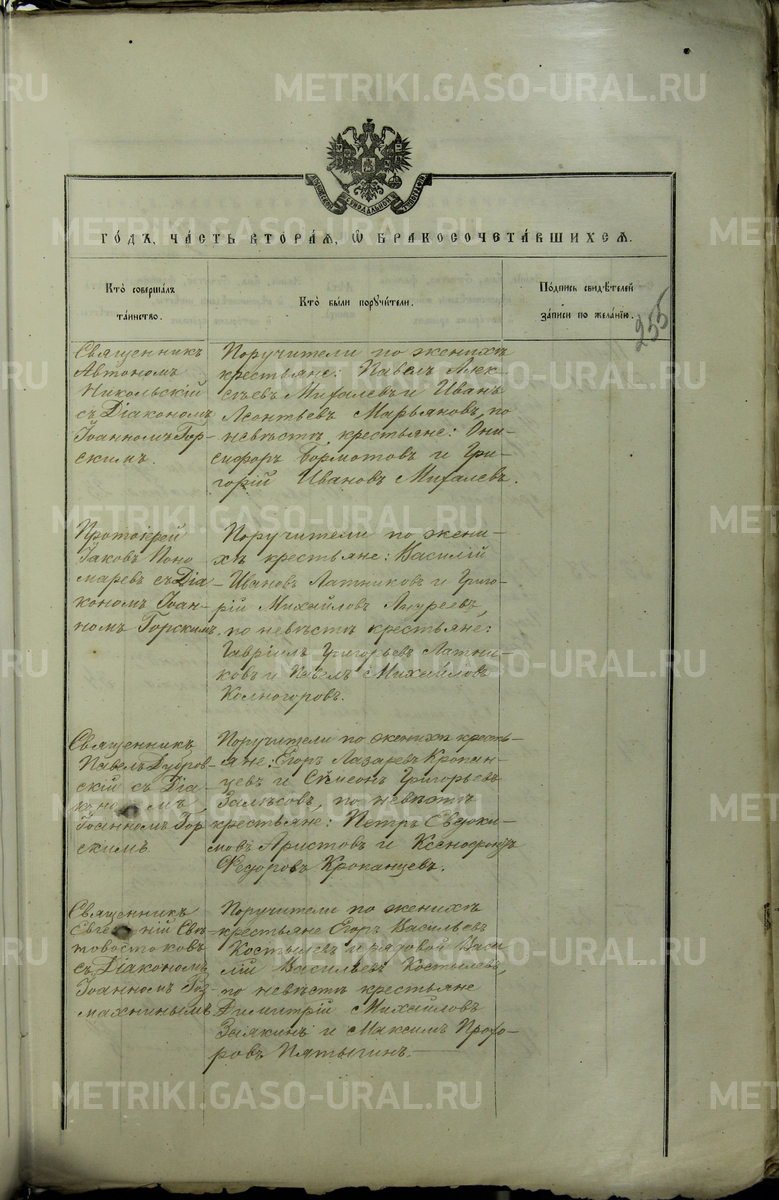 METRIKI.GASO-URAL.RU
ГО́ДЪ, ЧА́СТЬ ВТОРА́Я, Ѡ҆ БРАКОСОЧЕТА́ВШИХСЯ.
Кто̀ соверша́лъ
та́инство.
Кто̀ бы́ли поручи́тели.
По́дпись свидѣ́телей
за́писи по жела́нїю.
255
Священникъ
Автономъ
Никольскій
съ Діакономъ
Іоанномъ Гор-
скимъ.
Поручители по женихѣ
крестьяне: Павелъ Алек-
сѣевъ Михалевъ и Иванъ
Леонтьевъ Марьяновъ, по
невѣстѣ крестьяне: Они-
сифоръ Бормотовъ и Гри-
горій Ивановъ Михалевъ.
Протоіерей
Іаковъ Поно
маревъ съ Діа-
кономъ Іоан-
номъ Горскимъ.
Поручители по жени-
хѣ крестьяне: Василій
Ивановъ Латниковъ и Григо-
рій Михайловъ
по невѣстѣ крестьяне:
Гавріилъ Григорьевъ Латни-
ковъ и Павелъ Михайловъ
Колногоровъ.
Священникъ
Павелъ Дубров-
скій съ Діа-
кономъ
Іоанномъ Гор
скимъ
Поручители по женихѣ кресть-
яне: Егоръ Лазаревъ Кропан-
цевъ и Семеонъ Григорьевъ
Залѣсовъ, по невѣстѣ
крестьяне: Петръ Евдоки-
мовъ Аристовъ и Ксенофонтъ
Федоровъ Кропанцевъ.
Священникъ
Евгеній Свѣ-
товостоковъ
съ Діакономъ
Іоанномъ Гоз
махнинымъ
Поручители по женихѣ
крестьяне Егоръ Васильевъ
Костылевъ и рядовой Васи
лій Васильевъ Костылевъ,
по невѣстѣ крестьяне
Димитрій Михайловъ
Зыякинъ и Максимъ Прохо-
ровъ Пятыгинъ.